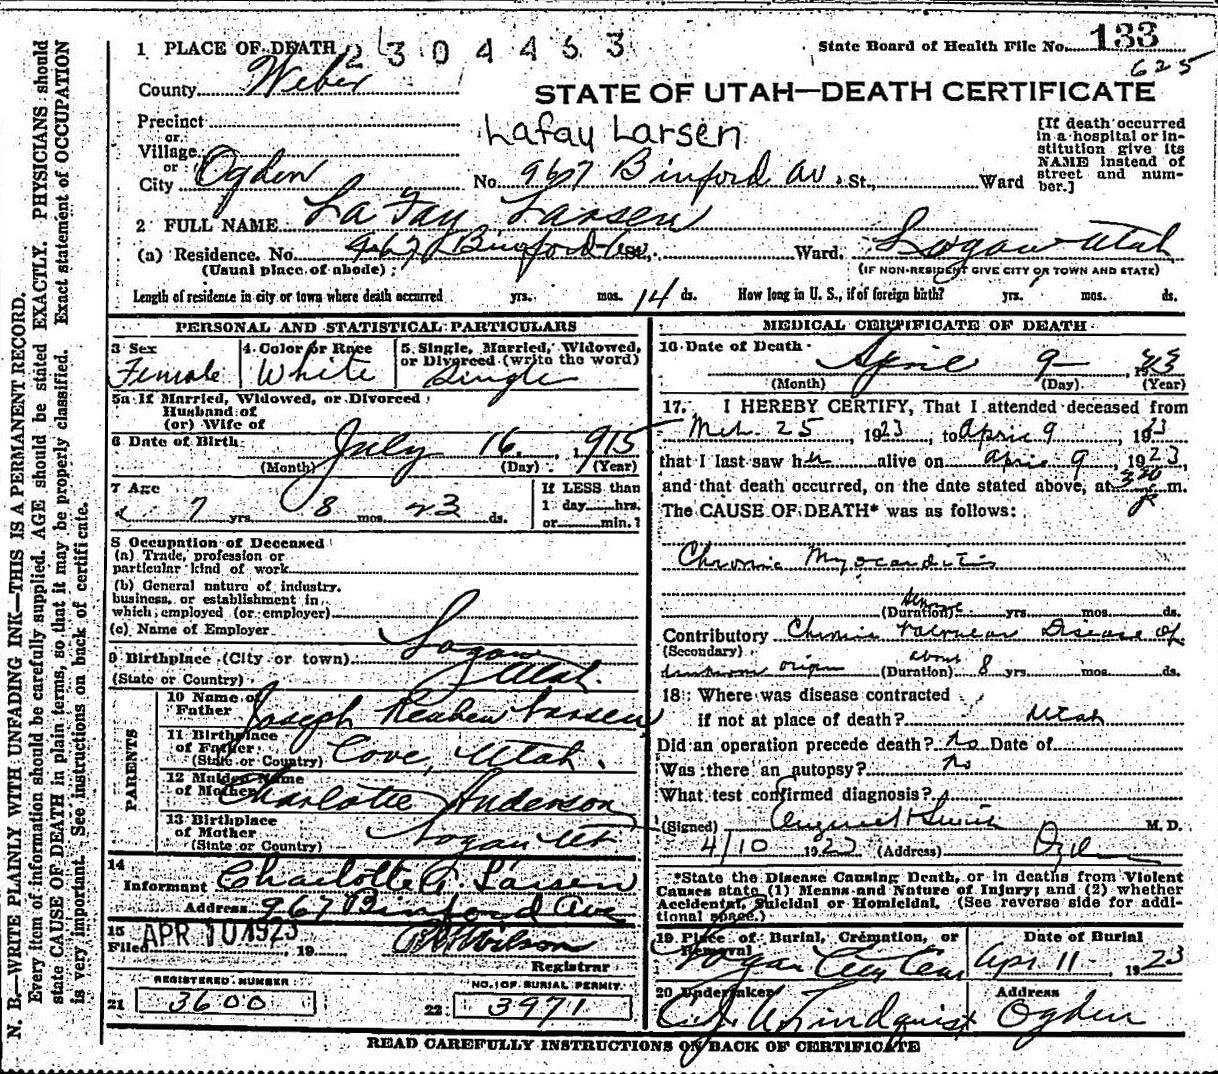 N. B.—WRITE PLAINLY WITH UNFADING INK—THIS IS A PERMANENT RECORD.
Every item of information should be carefully supplied. AGE should be stated EXACTLY. PHYSICIANS should
state CAUSE OF DEATH in plain terms, so that it may be properly classified. Exact statement of OCCUPATION
is very important. See instructions on back of certificate.
1 PLACE OF DEATH 2304463
State Board of Health File No. 133
625
County Weber
STATE OF UTAH—DEATH CERTIFICATE
Precinct
or
Village
or
City Ogden
Lafay Larsen
No. 967 Binford Av. St., Ward
[If death occurred
in a hospital or in-
stitution give its
NAME instead of
street and num-
ber.]
2 FULL NAME LaFay Larsen
(a) Residence. No. 967 Binford Ave. Ward. Logan Utah
(Usual place of abode) (IF NON-RESIDENT GIVE CITY OR TOWN AND STATE)
Length of residence in city or town where death occurred yrs. mos. 14 ds. How long in U. S., if of foreign birth? yrs. mos. ds.
PERSONAL AND STATISTICAL PARTICULARS
3 Sex
Female
4 Color or Race
White
5 Single, Married, Widowed,
or Divorced (write the word)
Single
5a If Married, Widowed, or Divorced
Husband of
(or) Wife of
6 Date of Birth July 16, 1915
(Month) (Day) (Year)
7 Age
7 yrs. 8 mos. 23 ds.
If LESS than
1 day hrs.
or min.?
8 Occupation of Deceased
(a) Trade, profession or
particular kind of work
(b) General nature of industry,
business, or establishment in
which employed (or employer)
(c) Name of Employer
9 Birthplace (City or town) Logan
(State or Country) Utah.
PARENTS
10 Name of
Father Joseph Reuben Larsen
11 Birthplace
of Father
(State or Country) Cove, Utah.
12 Maiden Name
of Mother Charlotte Anderson
13 Birthplace
of Mother
(State or Country) Logan Ut
14
Informant Charlotte A. Larsen
Address 967 Binford Ave
15
Filed APR 10 1923, 19 Wilson
Registrar
REGISTERED NUMBER
21 3600
NO. OF BURIAL PERMIT
22 3971
MEDICAL CERTIFICATE OF DEATH
16 Date of Death
April 9 1923
(Month) (Day) (Year)
17. I HEREBY CERTIFY, That I attended deceased from
Mch. 25, 1923, to April 9, 1923
that I last saw her alive on April 9, 1923,
and that death occurred, on the date stated above, at 320 P m.
The CAUSE OF DEATH* was as follows:
Chronic Myocarditis
(Duration) yrs. mos. ds.
Contributory Chronic Valvular Disease of
(Secondary)
origin about (Duration) 8 yrs. mos. ds.
18 Where was disease contracted
if not at place of death? Utah
Did an operation precede death? no Date of
Was there an autopsy? no
What test confirmed diagnosis?
(Signed) M. D.
4/10 1923 (Address) Ogden
*State the Disease Causing Death, or in deaths from Violent
Causes state (1) Means and Nature of Injury; and (2) whether
Accidental, Suicidal or Homicidal. (See reverse side for addi-
tional space.)
19 Place of Burial, Cremation, or
Removal
Logan City Cem
Date of Burial
Apr 11 1923
20 Undertaker
Lindquist
Address
Ogden
READ CAREFULLY INSTRUCTIONS ON BACK OF CERTIFICATE